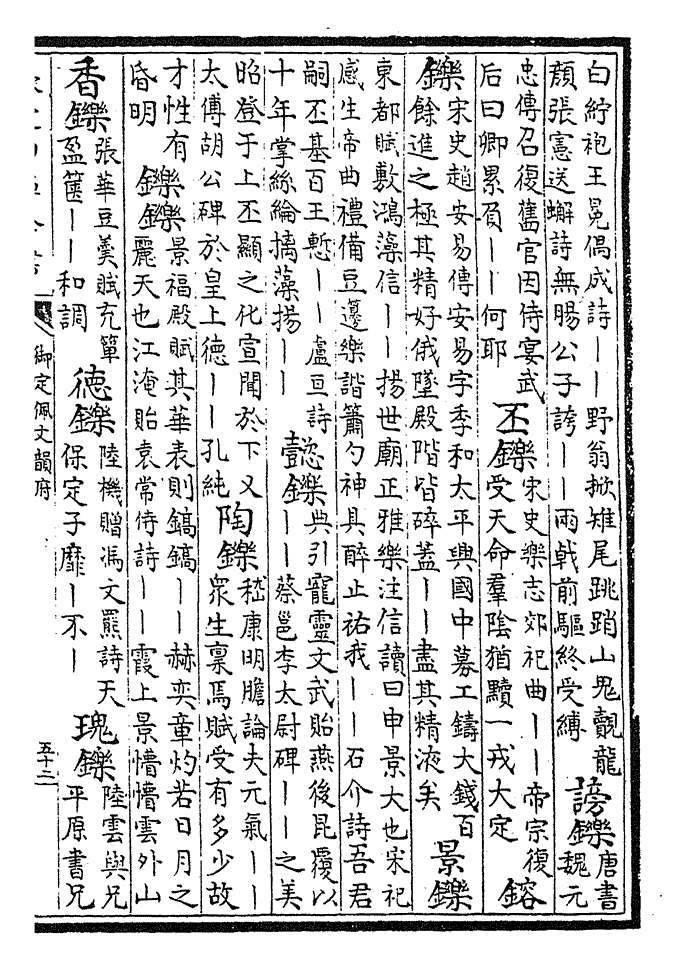 白紵袍王冕偶成詩一一野翁掀雉尾跳踏山鬼覿龍
顏張憲送蠏詩無腸公子誇一一兩戟前驅終受縛
謗鑠
唐書
魏元
忠傳召復舊官因侍宴武
后曰卿累負一一何耶
丕鑠
宋史樂志郊祀曲一一帝宗復
受天命羣陰猶黷一戎大定
鎔
鑠
宋史趙安易傳安易字季和太平興國中募工鑄大錢百
餘進之極其精好俄墜殿階皆碎蓋一一盡其精液矣
景鑠
東都賦敷鴻藻信一一揚世廟正雅樂注信讀曰申景大也宋祀
感生帝曲禮備豆籩樂諧簫勺神具醉止祐我一一石介詩吾君
嗣丕基百王慙一一盧亘詩
十年掌絲綸摛藻揚一一
懿鑠
典引寵靈文武貽燕後昆覆以
一一蔡邕李太尉碑一一之美
昭登于上丕顯之化宣聞於下又
太傅胡公碑於皇上德一一孔純
陶鑠
嵇康明膽論夫元氣一一
衆生稟焉賦受有多少故
才性有
昏明
鑠鑠
景福殿賦其華表則鎬鎬一一赫奕章灼若日月之
麗天也江淹貽袁常侍詩一一霞上景懵懵雲外山
香鑠
張華豆羹賦充簞
盈篋一一和調
德鑠
陸機贈馮文羆詩天
保定子靡一不一
瑰鑠
陸雲與兄
平原書兄
御定佩文韻府
五十二